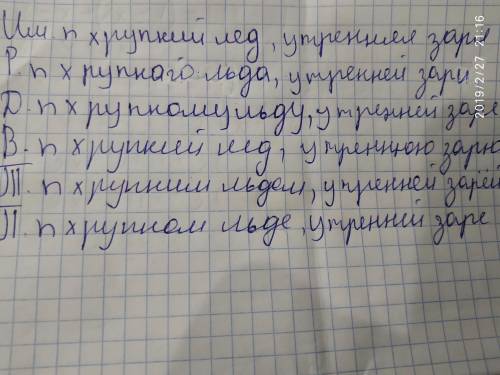 Им. п хрупкий лед, утренняя заря
Р. п хрупкаго льда, утренней зари
Д. п хрупкому льду, утренней заре
В. п хрупкий лед, утреннюю зарю
Т. п хрупким льдом, утренней зарёй
П. п хрупком льде, утренней заре
2019/2/27 21:16